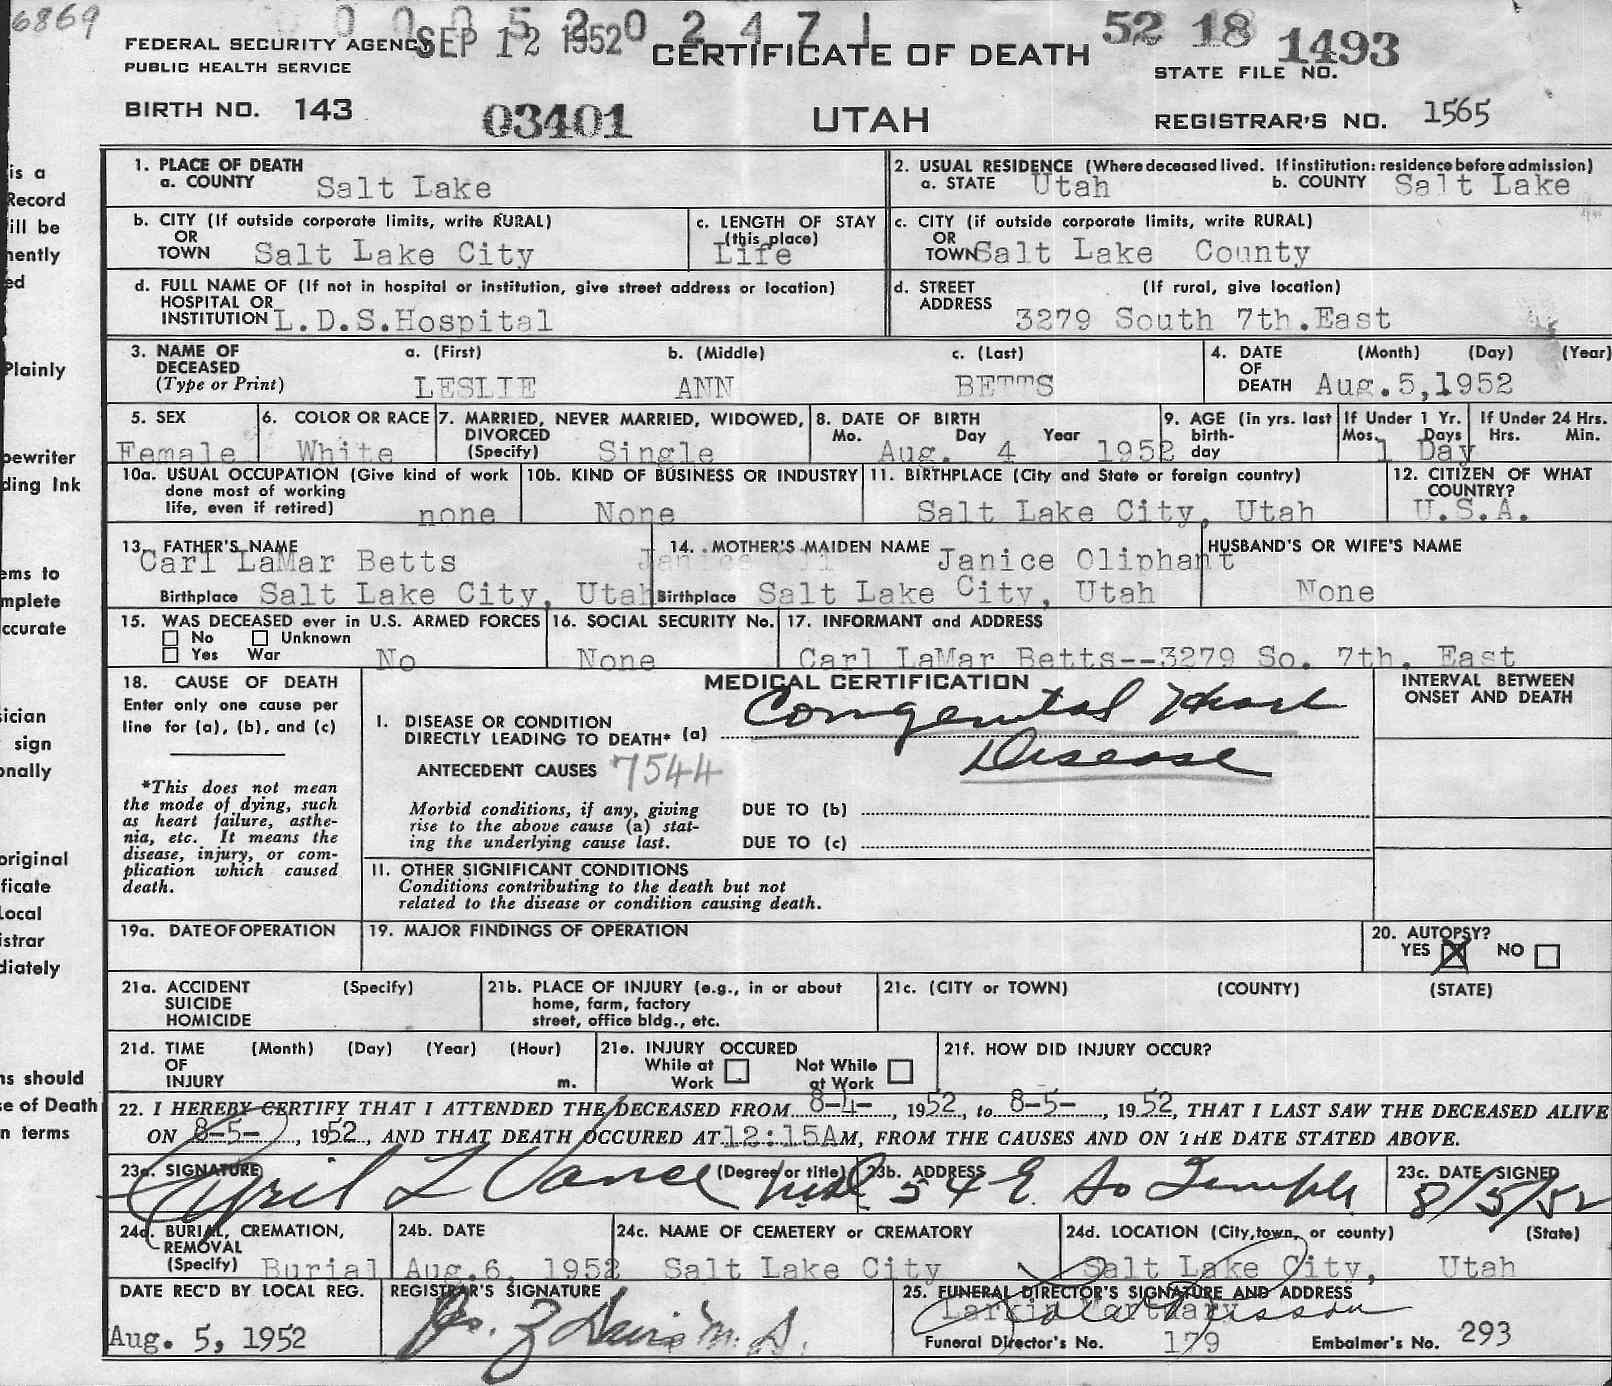 6869
0 0 0 5 2 0 2 4 7 1
SEP 12 1952
52 18 1493
FEDERAL SECURITY AGENCY
PUBLIC HEALTH SERVICE
CERTIFICATE OF DEATH
STATE FILE NO.
BIRTH NO. 143
03401
UTAH
REGISTRAR'S NO. 1565
is a
Record
ill be
nently
ed
Plainly
pewriter
ding Ink
ems to
mplete
ccurate
sician
sign
onally
original
ficate
Local
istrar
diately
ns should
se of Death
n terms
1. PLACE OF DEATH
a. COUNTY Salt Lake
2. USUAL RESIDENCE (Where deceased lived. If institution: residence before admission)
a. STATE Utah b. COUNTY Salt Lake
b. CITY (If outside corporate limits, write RURAL)
OR
TOWN Salt Lake City
c. LENGTH OF STAY
(this place)
Life
c. CITY (if outside corporate limits, write RURAL)
OR
TOWN Salt Lake County
d. FULL NAME OF (If not in hospital or institution, give street address or location)
HOSPITAL OR
INSTITUTION L.D.S.Hospital
d. STREET (If rural, give location)
ADDRESS 3279 South 7th.East
3. NAME OF DECEASED
(Type or Print)
a. (First) b. (Middle) c. (Last)
LESLIE ANN BETTS
4. DATE OF DEATH (Month) (Day) (Year)
Aug.5,1952
5. SEX
Female
6. COLOR OR RACE
White
7. MARRIED, NEVER MARRIED, WIDOWED,
DIVORCED
(Specify) Single
8. DATE OF BIRTH
Mo. Day Year
Aug. 4 1952
9. AGE (in yrs. last birth-
day
If Under 1 Yr.
Mos. Days
1 Day
If Under 24 Hrs.
Hrs. Min.
10a. USUAL OCCUPATION (Give kind of work
done most of working
life, even if retired) none
10b. KIND OF BUSINESS OR INDUSTRY
None
11. BIRTHPLACE (City and State or foreign country)
Salt Lake City, Utah
12. CITIZEN OF WHAT
COUNTRY?
U.S.A.
13. FATHER'S NAME
Carl LaMar Betts
Birthplace Salt Lake City, Utah
14. MOTHER'S MAIDEN NAME Janice Oliphant
Birthplace Salt Lake City, Utah
HUSBAND'S OR WIFE'S NAME
None
15. WAS DECEASED ever in U.S. ARMED FORCES
No Unknown
Yes War No
16. SOCIAL SECURITY No.
None
17. INFORMANT and ADDRESS
Carl LaMar Betts--3279 So. 7th. East
18. CAUSE OF DEATH
Enter only one cause per
line for (a), (b), and (c)
*This does not mean
the mode of dying, such
as heart failure, asthe-
nia, etc. It means the
disease, injury, or com-
plication which caused
death.
MEDICAL CERTIFICATION
INTERVAL BETWEEN
ONSET AND DEATH
I. DISEASE OR CONDITION
DIRECTLY LEADING TO DEATH* (a) Congenital Heart
Disease
ANTECEDENT CAUSES 7544
Morbid conditions, if any, giving
rise to the above cause (a) stat-
ing the underlying cause last.
DUE TO (b)
DUE TO (c)
II. OTHER SIGNIFICANT CONDITIONS
Conditions contributing to the death but not
related to the disease or condition causing death.
19a. DATE OF OPERATION
19. MAJOR FINDINGS OF OPERATION
20. AUTOPSY?
YES X NO
21a. ACCIDENT (Specify)
SUICIDE
HOMICIDE
21b. PLACE OF INJURY (e.g., in or about
home, farm, factory
street, office bldg., etc.
21c. (CITY or TOWN) (COUNTY) (STATE)
21d. TIME (Month) (Day) (Year) (Hour)
OF
INJURY m.
21e. INJURY OCCURED
While at Work Not While at Work
21f. HOW DID INJURY OCCUR?
22. I HEREBY CERTIFY THAT I ATTENDED THE DECEASED FROM 8-4-, 1952, to 8-5-, 1952, THAT I LAST SAW THE DECEASED ALIVE
ON 8-5-, 1952, AND THAT DEATH OCCURED AT 12:15AM, FROM THE CAUSES AND ON THE DATE STATED ABOVE.
23a. SIGNATURE (Degree or title)
Cyril L Vance M.D.
23b. ADDRESS
54 E. So Temple
23c. DATE SIGNED
8/5/52
24a. BURIAL, CREMATION,
REMOVAL
(Specify) Burial
24b. DATE
Aug.6, 1952
24c. NAME OF CEMETERY or CREMATORY
Salt Lake City
24d. LOCATION (City,town, or county) (State)
Salt Lake City, Utah
DATE REC'D BY LOCAL REG.
Aug. 5, 1952
REGISTRAR'S SIGNATURE
Davis M. D.
25. FUNERAL DIRECTOR'S SIGNATURE AND ADDRESS
Larkin Mortuary
Funeral Director's No. 179 Embalmer's No. 293